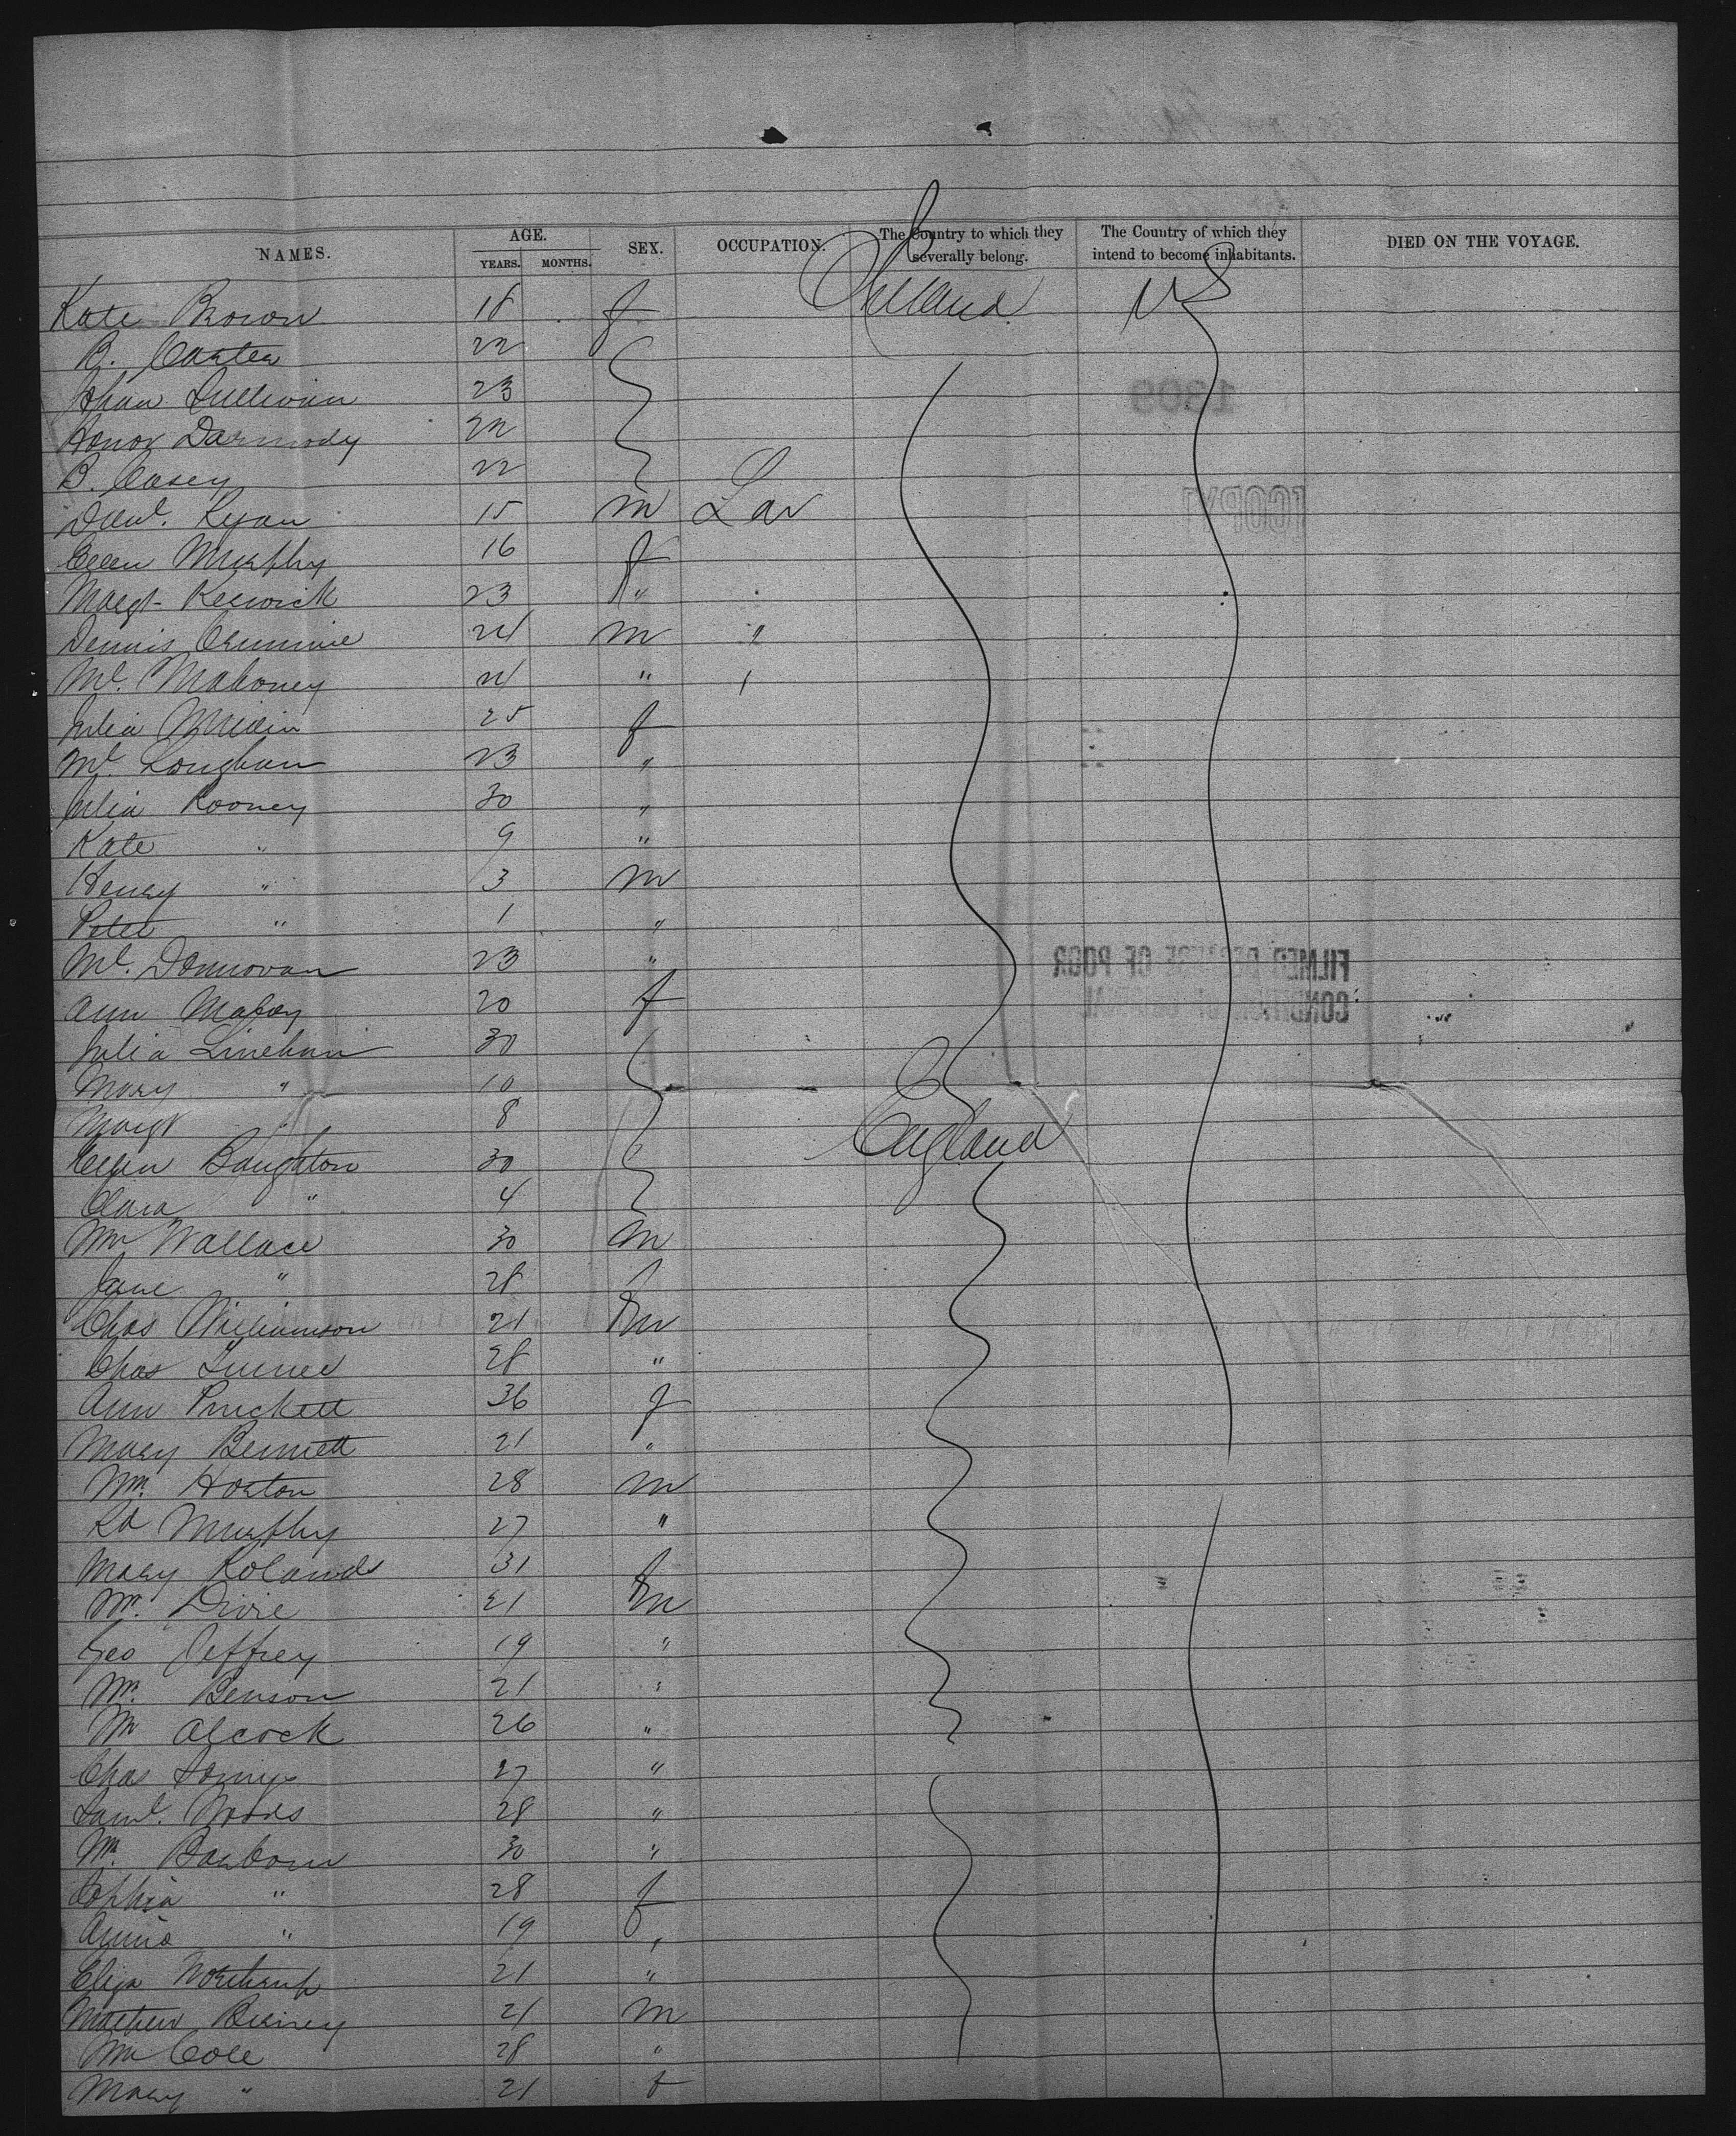 NAMES. AGE. YEARS. MONTHS. SEX. OCCUPATION. The Country to which they severally belong. The Country of which they intend to become inhabitants. DIED ON THE VOYAGE.
Kate Brown 18 f Ireland US
B. Carter 22
Johan Sullivan 23
Honor Darmody 22
B. Casey 22
Danl. Ryan 15 m Lar
Ellen Murphy 16 f
Margt Keswick 23 "
Dennis Crimmie 24 m "
Ml. Mahoney 24 "
Julia 25 f
Ml. Loughan 23 "
Julia Rooney 30 "
Kate " 9 "
Henry " 3 m
Peter " 1 "
Ml. Donnovan 23 "
Ann Mahoy 20 f
Julia Linehan 30
Mary " 10
Margt " 8
Ellen Boughton 30 England
Clara " 4
Wm Wallace 30 m
Jane " 28 f
Chas Williamson 21 m
Chas Turner 28 "
Ann Pruckett 36 f
Mary Bennett 21 "
Wm. Horton 28 m
Rd Murphy 27 "
Mary Rolands 31 f
Wm. Divie 21 m
Geo Jeffrey 19 "
Wm. Benson 21 "
Wm Alcock 26 "
Chas 27 "
Saml. Woods 28 "
Wm. Barborn 30 "
Sophia " 28 f
Annie " 19 "
Eliza 21 "
Mathew Birney 21 m
Wm Cole 28 "
Mary " 21 f
1309
COPY
FILMED BECAUSE OF POOR
CONDITION OF ORIGINAL